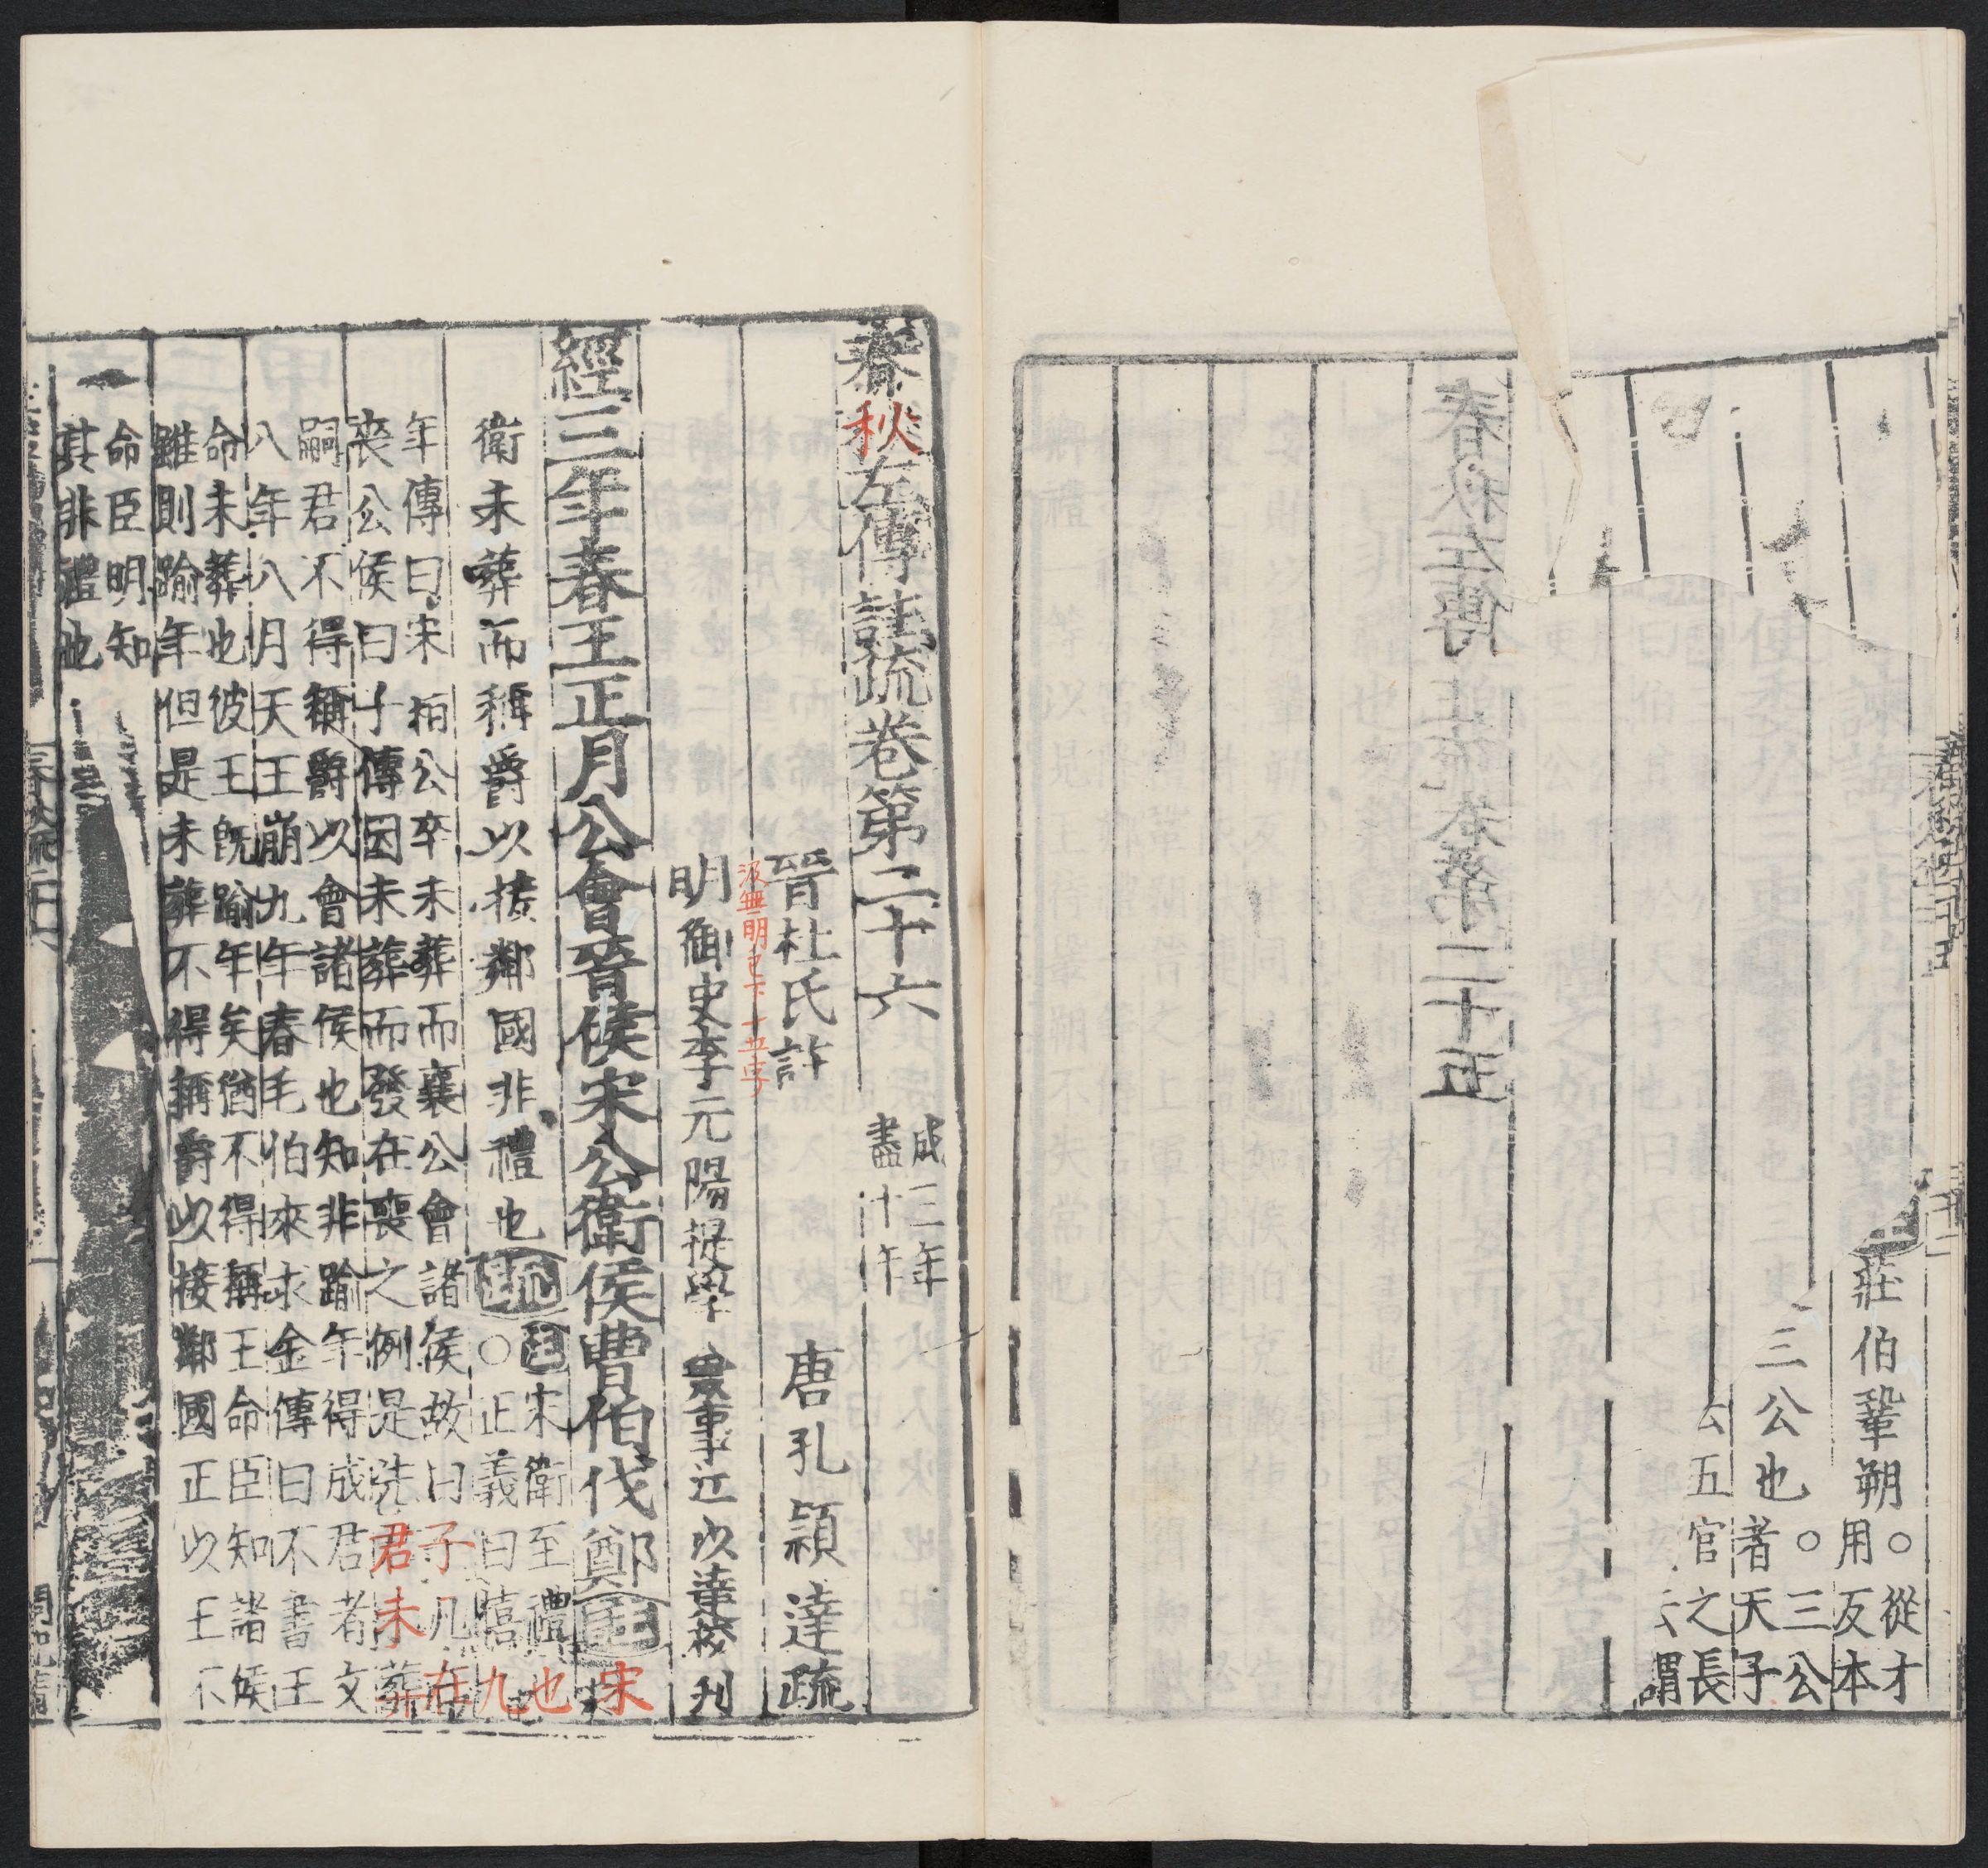 莊伯鞏朔○從才
用反本
三公也○三公
者天子
五官之長
謂
春秋左傳註疏卷第二十五
春秋左傳註疏卷第二十六
成三年
盡十年
晉杜氏註
唐孔穎達疏
汲無明已下十五字
明御史李元陽提學僉事江以達校刊
經三年春王正月公會晉侯宋公衛侯曹伯伐鄭註宋
衛未葬而稱爵以接鄰國非禮也疏註宋衛至禮也
○正義曰僖九
年傳曰宋桓公卒未葬而襄公會諸侯故曰子凡在
喪公侯曰子傳因未葬而發在喪之例是先君未葬
嗣君不得稱爵以會諸侯也知非踰年得成君者文
八年八月天王崩九年春毛伯來求金傳曰不書王
命未葬也彼王旣踰年矣猶不得稱王命臣知諸侯
雖則踰年但是未葬不得稱爵以接鄰國正以王不
命臣明知
其非禮也